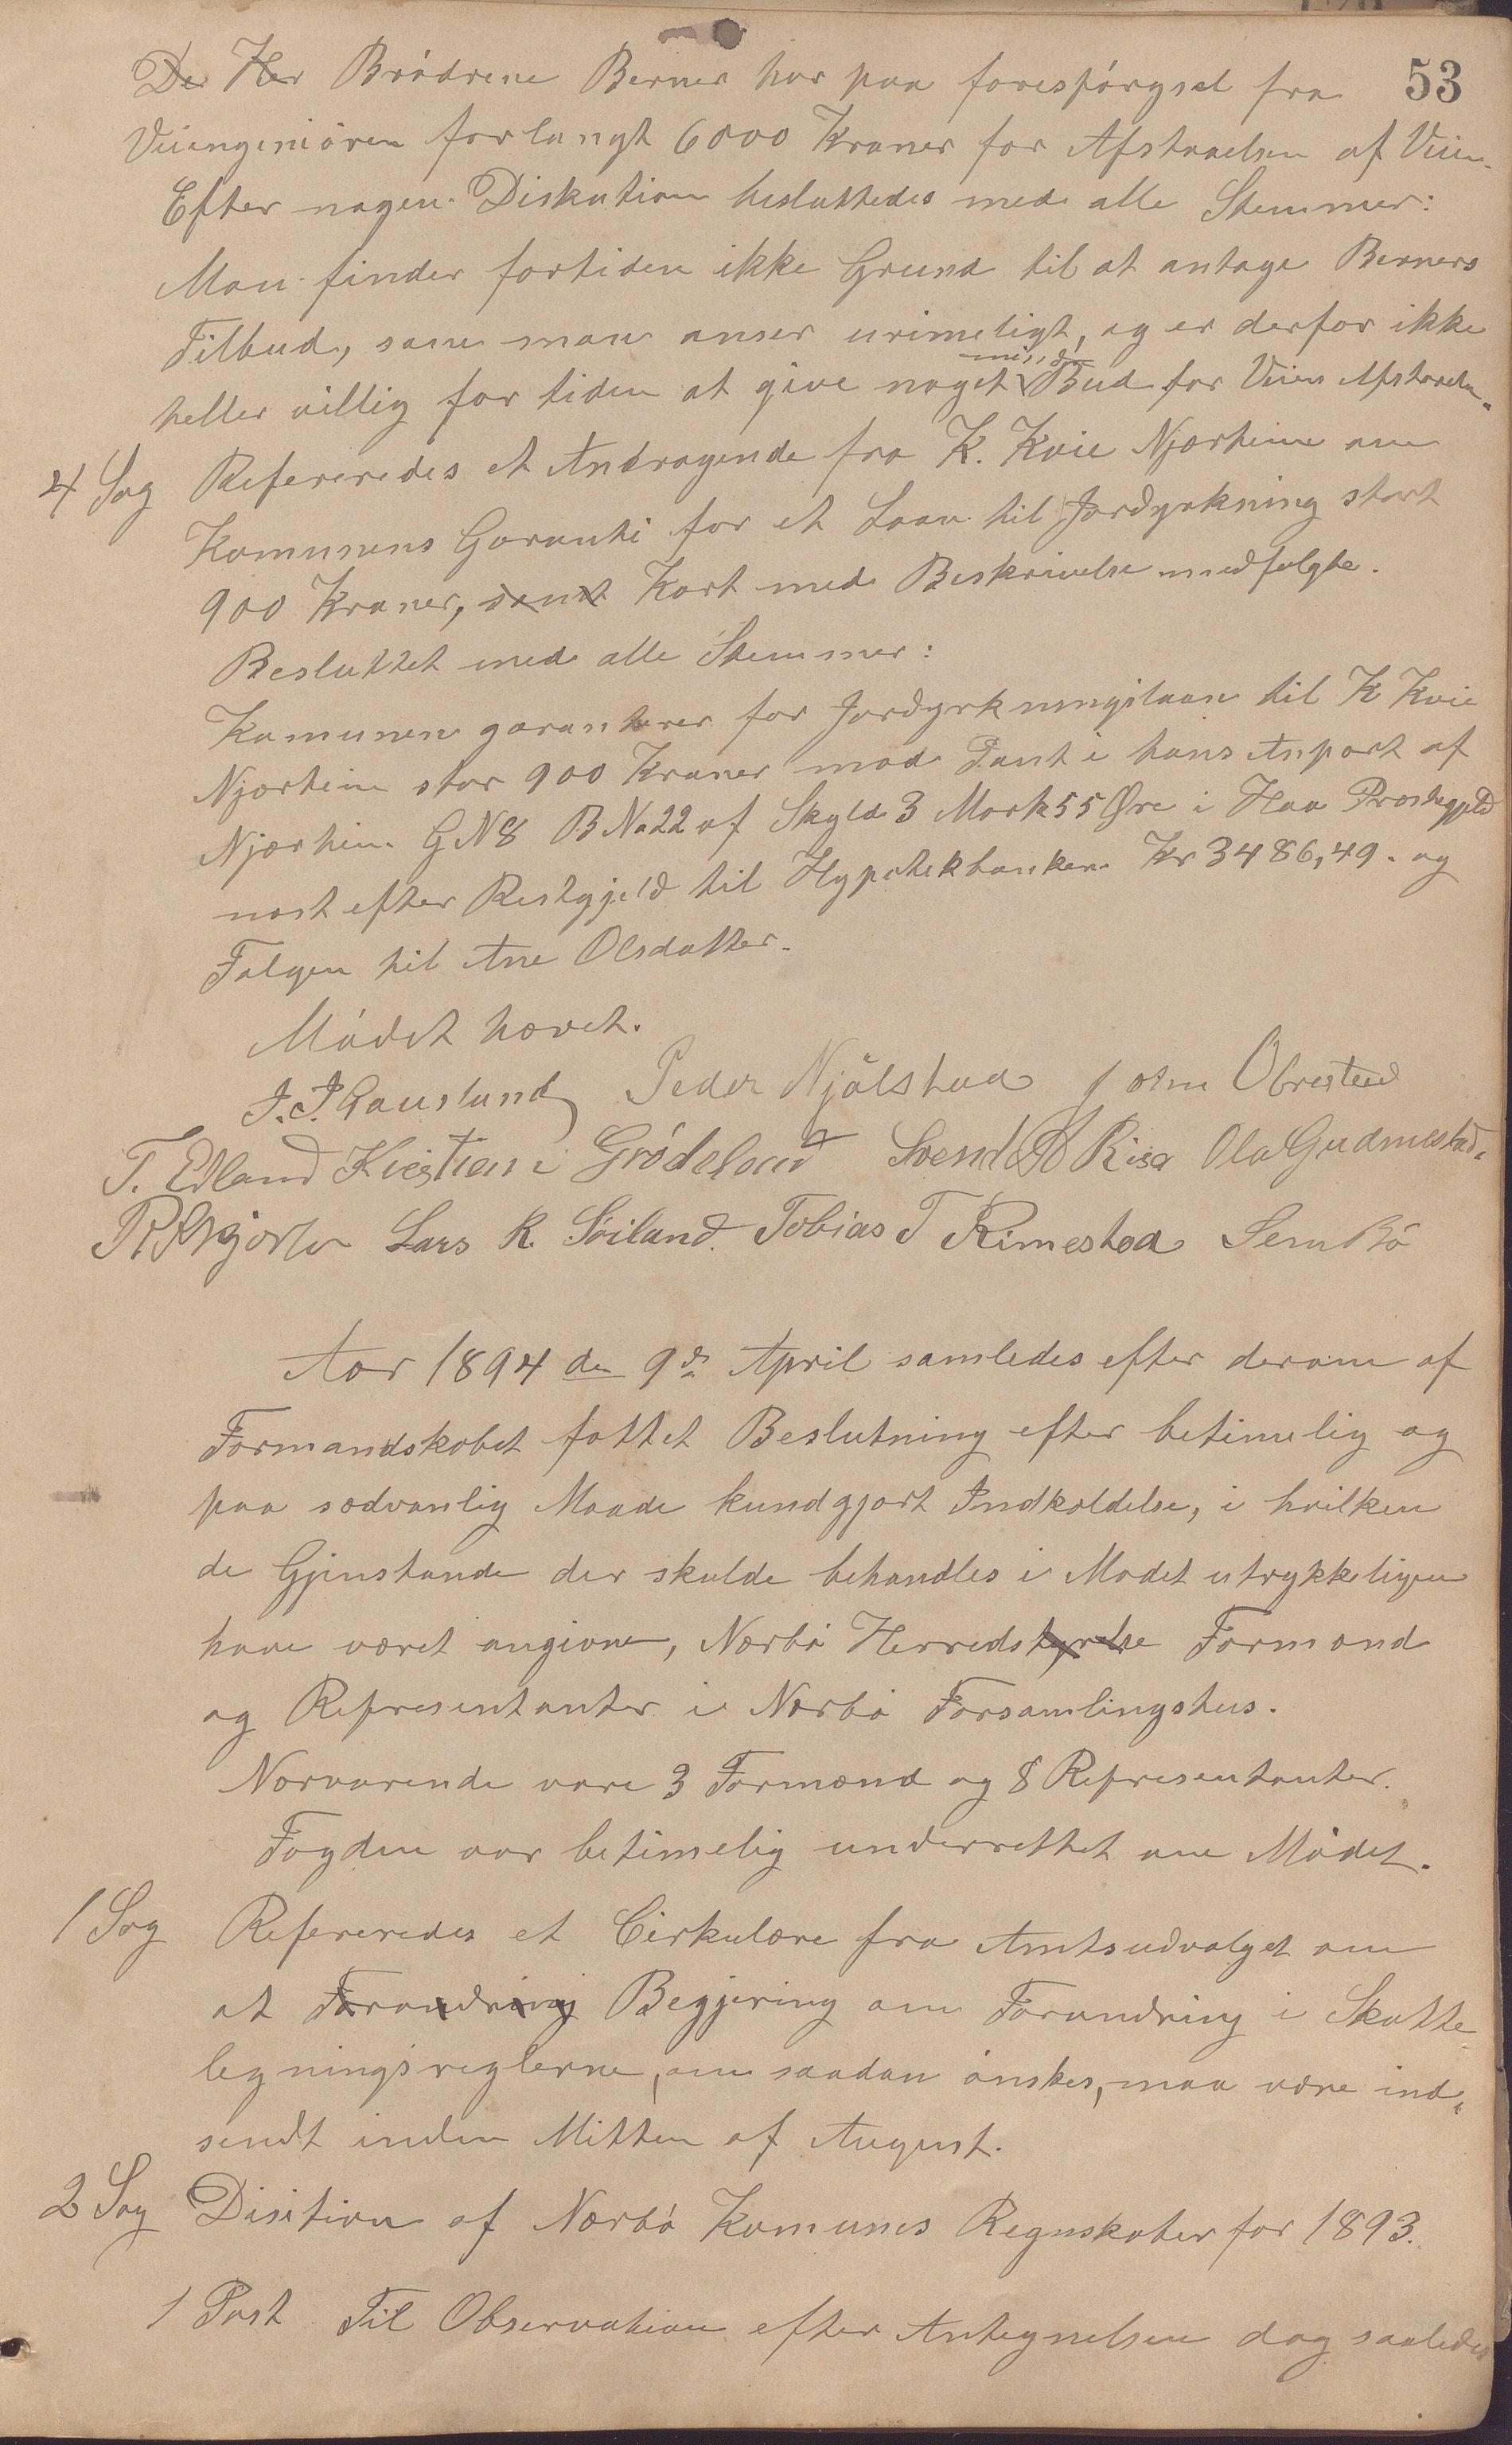 53
De Her Brødrene Berner har paa forespørgsel fra
Veiingeniøren forlangt 6000 Kroner for Afstaaelsen af Veien.
Efter nogen Diskution besluttedes med alle Stemmer:
Man finder fortiden ikke Grund til at antage Berners
Tilbud, som man anser urimeligt, og er derfor ikke
heller villig for tiden at give noget Bud for Veiens Afstaaelse.
4 Sag Refereredes et Andragende fra K. Kvie Njærheim om
Komunens Garanti for et Laan til Jorddyrkning stort
900 Kroner, samt Kart med Beskrivelse medfølgte.
Besluttet med alle Stemmer:
Komunen garanterer for Jorddyrkningslaan til K Kvie
Njærheim stor 900 Kroner mod Pant i hans Anpart af
Njærheim G N 8 B No 22 af Skyld 3 Mark 55 Øre i Haa Præstegjeld
næst efter Restgjeld til Hypothekbanken Kr 3486,49. og
Følgen til Ane Olsdatter.
Mødet hævet.
J. J. Gausland Peder Njålstad John Obrestad
T. Edland Kristian Grødeland Svend B Risa Ola Gudmestad.
Lars R. Søiland. Tobias T Rimestad Sem Bø
Aar 1894 den 9de April samledes efter derom af
Formandskabet fattet Beslutning efter betimelig og
paa sædvanlig Maade kundgjort Indkaldelse, i hvilken
de Gjenstande der skulde behandles i Mødet utrykkeligen
have været angivne, Nærbø Herredstyrelse Formænd
og Representanter i Nærbø Forsamlingshus.
Nærværende vare 3 Formænd og 8 Representanter.
Fogden var betimelig underrettet om Mødet.
1 Sag Refereredes et Cirkulære fra Amtsudvalget om
at Forandring Begjering om Forandring i Skatte
legningsreglerne, om saadan ønskes, maa være ind-
sendt inden Mitten af August.
2 Sag Disition af Nærbø Komunes Regnskaber for 1893.
1 Post Til Observation efter Antegnelsen dog saaledes